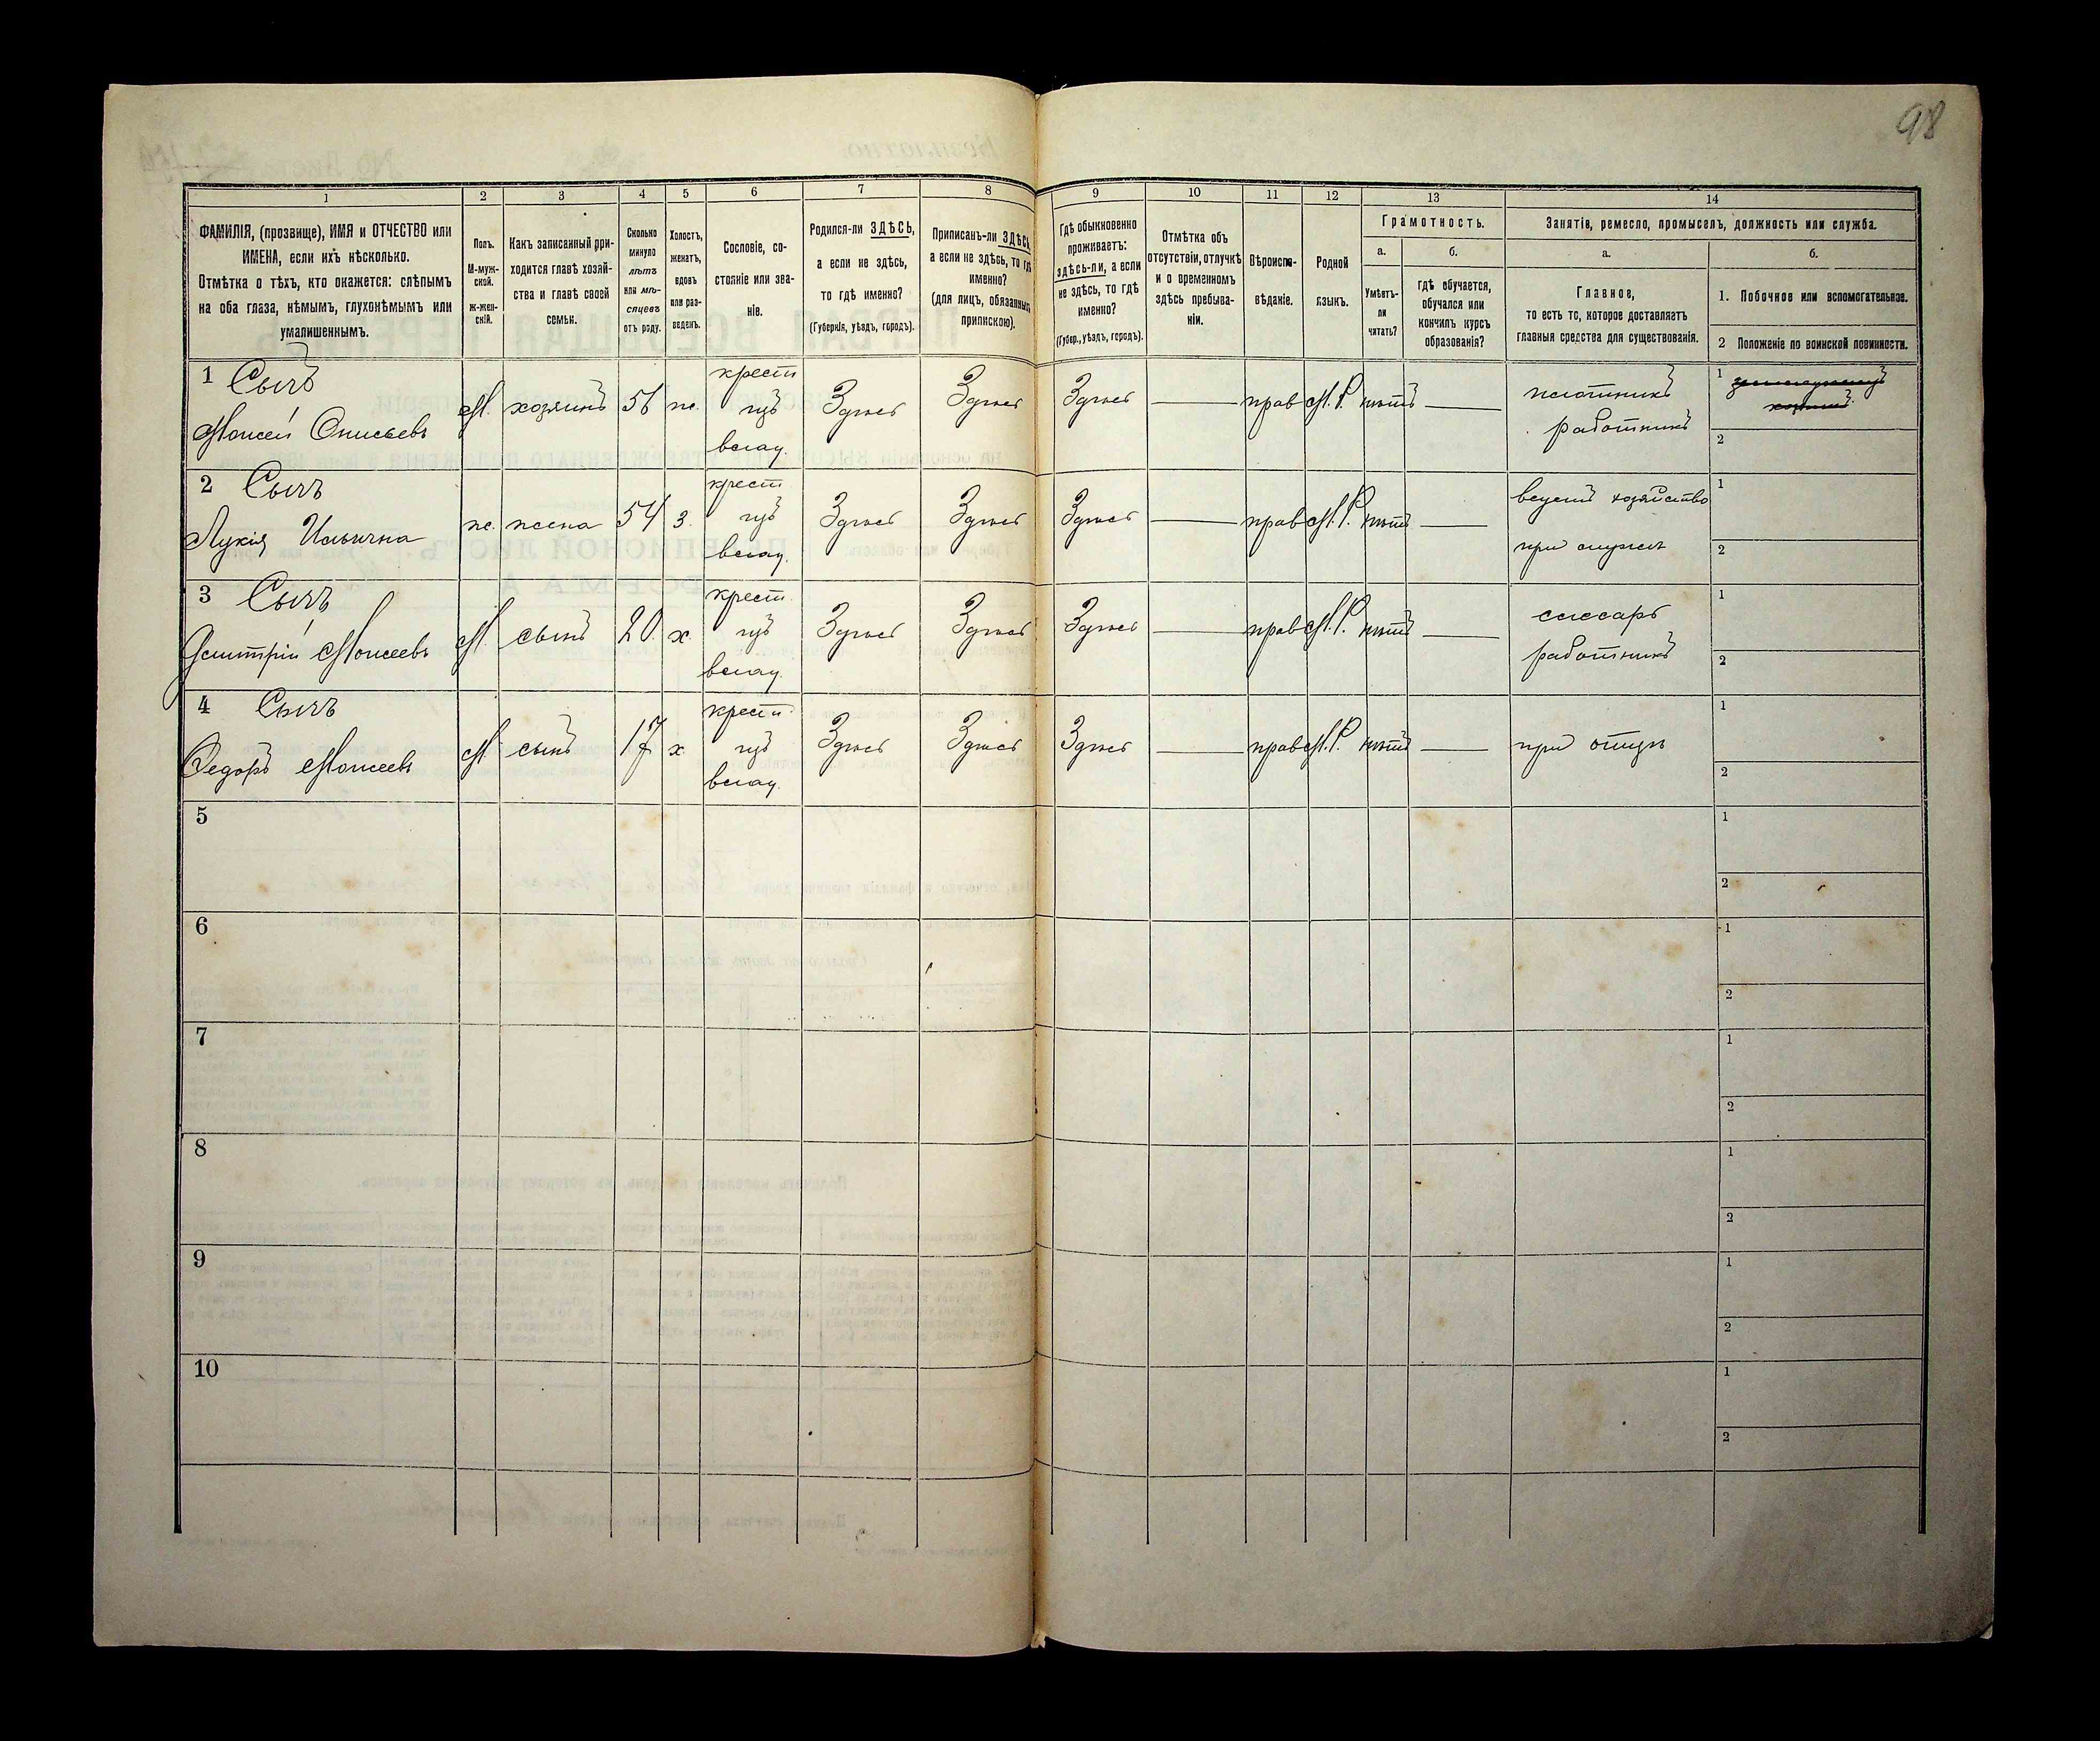 98
1 2 3 4 5 6 7 8 9 10 11 12 13 14
ФАМИЛІЯ, (прозвище), ИМЯ и ОТЧЕСТВО или
ИМЕНА, если ихъ нѣсколько.
Отмѣтка о тѣхъ, кто окажется: слѣпымъ
на оба глаза, нѣмымъ, глухонѣмымъ или
умалишеннымъ.
Полъ.
М-муж-
ской.
ж-жен-
скій.
Какъ записанный при-
ходится главѣ хозяй-
ства и главѣ своей
семьи.
Сколько
минуло
лѣтъ
или мѣ-
сяцевъ
отъ роду.
Холостъ,
женатъ,
вдовъ
или раз-
веденъ.
Сословіе, со-
стояніе или зва-
ніе.
Родился-ли ЗДѢСЬ,
а если не здѣсь,
то гдѣ именно?
(Губернія, уѣздъ, городъ).
Приписанъ-ли ЗДѢСЬ,
а если не здѣсь, то гдѣ
именно?
(для лицъ, обязанныхъ
припискою).
Гдѣ обыкновенно
проживаетъ:
здѣсь-ли, а если
не здѣсь, то гдѣ
именно?
(Губер., уѣздъ, городъ).
Отмѣтка объ
отсутствіи, отлучкѣ
и о временномъ
здѣсь пребыва-
ніи.
Вѣроиспо-
вѣданіе.
Родной
языкъ.
Грамотность.
а.
Умѣетъ-
ли
читать?
б.
гдѣ обучается,
обучался или
кончилъ курсъ
образованія?
Занятіе, ремесло, промыселъ, должность или служба.
а.
Главное,
то есть то, которое доставляетъ
главныя средства для существованія.
б.
1. Побочное или вспомогательное.
2 Положеніе по воинской повинности.
1 Сычъ
Моисей Онисьевъ
М. хозяинъ 56 ж.
крест
изъ
влад.
Здѣсь Здѣсь Здѣсь — прав М.Р. нѣтъ —
плотникъ
работникъ
1
2
2 Сычъ
Лукія Ильична
ж. жена 54 з.
крест
изъ
влад.
Здѣсь Здѣсь Здѣсь — прав М.Р. нѣтъ —
ведетъ хозяйство
при мужѣ
1
2
3 Сычъ
Дмитрій Моисеевъ
М. сынъ 20 х
крест
изъ
влад.
Здѣсь Здѣсь Здѣсь — прав М.Р. нѣтъ —
слесарь
работникъ
1
2
4 Сычъ
Федоръ Моисеевъ
М сынъ 17 х
крест
изъ
влад.
Здѣсь Здѣсь Здѣсь — прав М.Р. нѣтъ —
при отцѣ
1
2
5
1
2
6
1
2
7
1
2
8
1
2
9
1
2
10
1
2